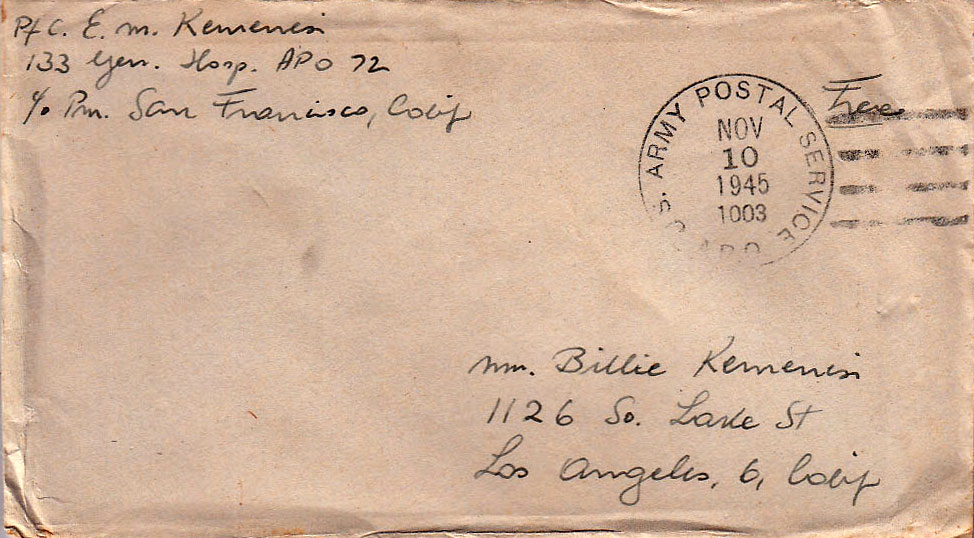 Pfc. E. M. Kemenesi
133 Gen. Hosp. APO 72
c/o Pm. San Francisco, Calif
Free
U.S. ARMY POSTAL SERVICE
NOV
10
1945
1003
A.P.O.
Mrs. Billie Kemenesi
1126 So. Lake St
Los Angeles, 6, Calif